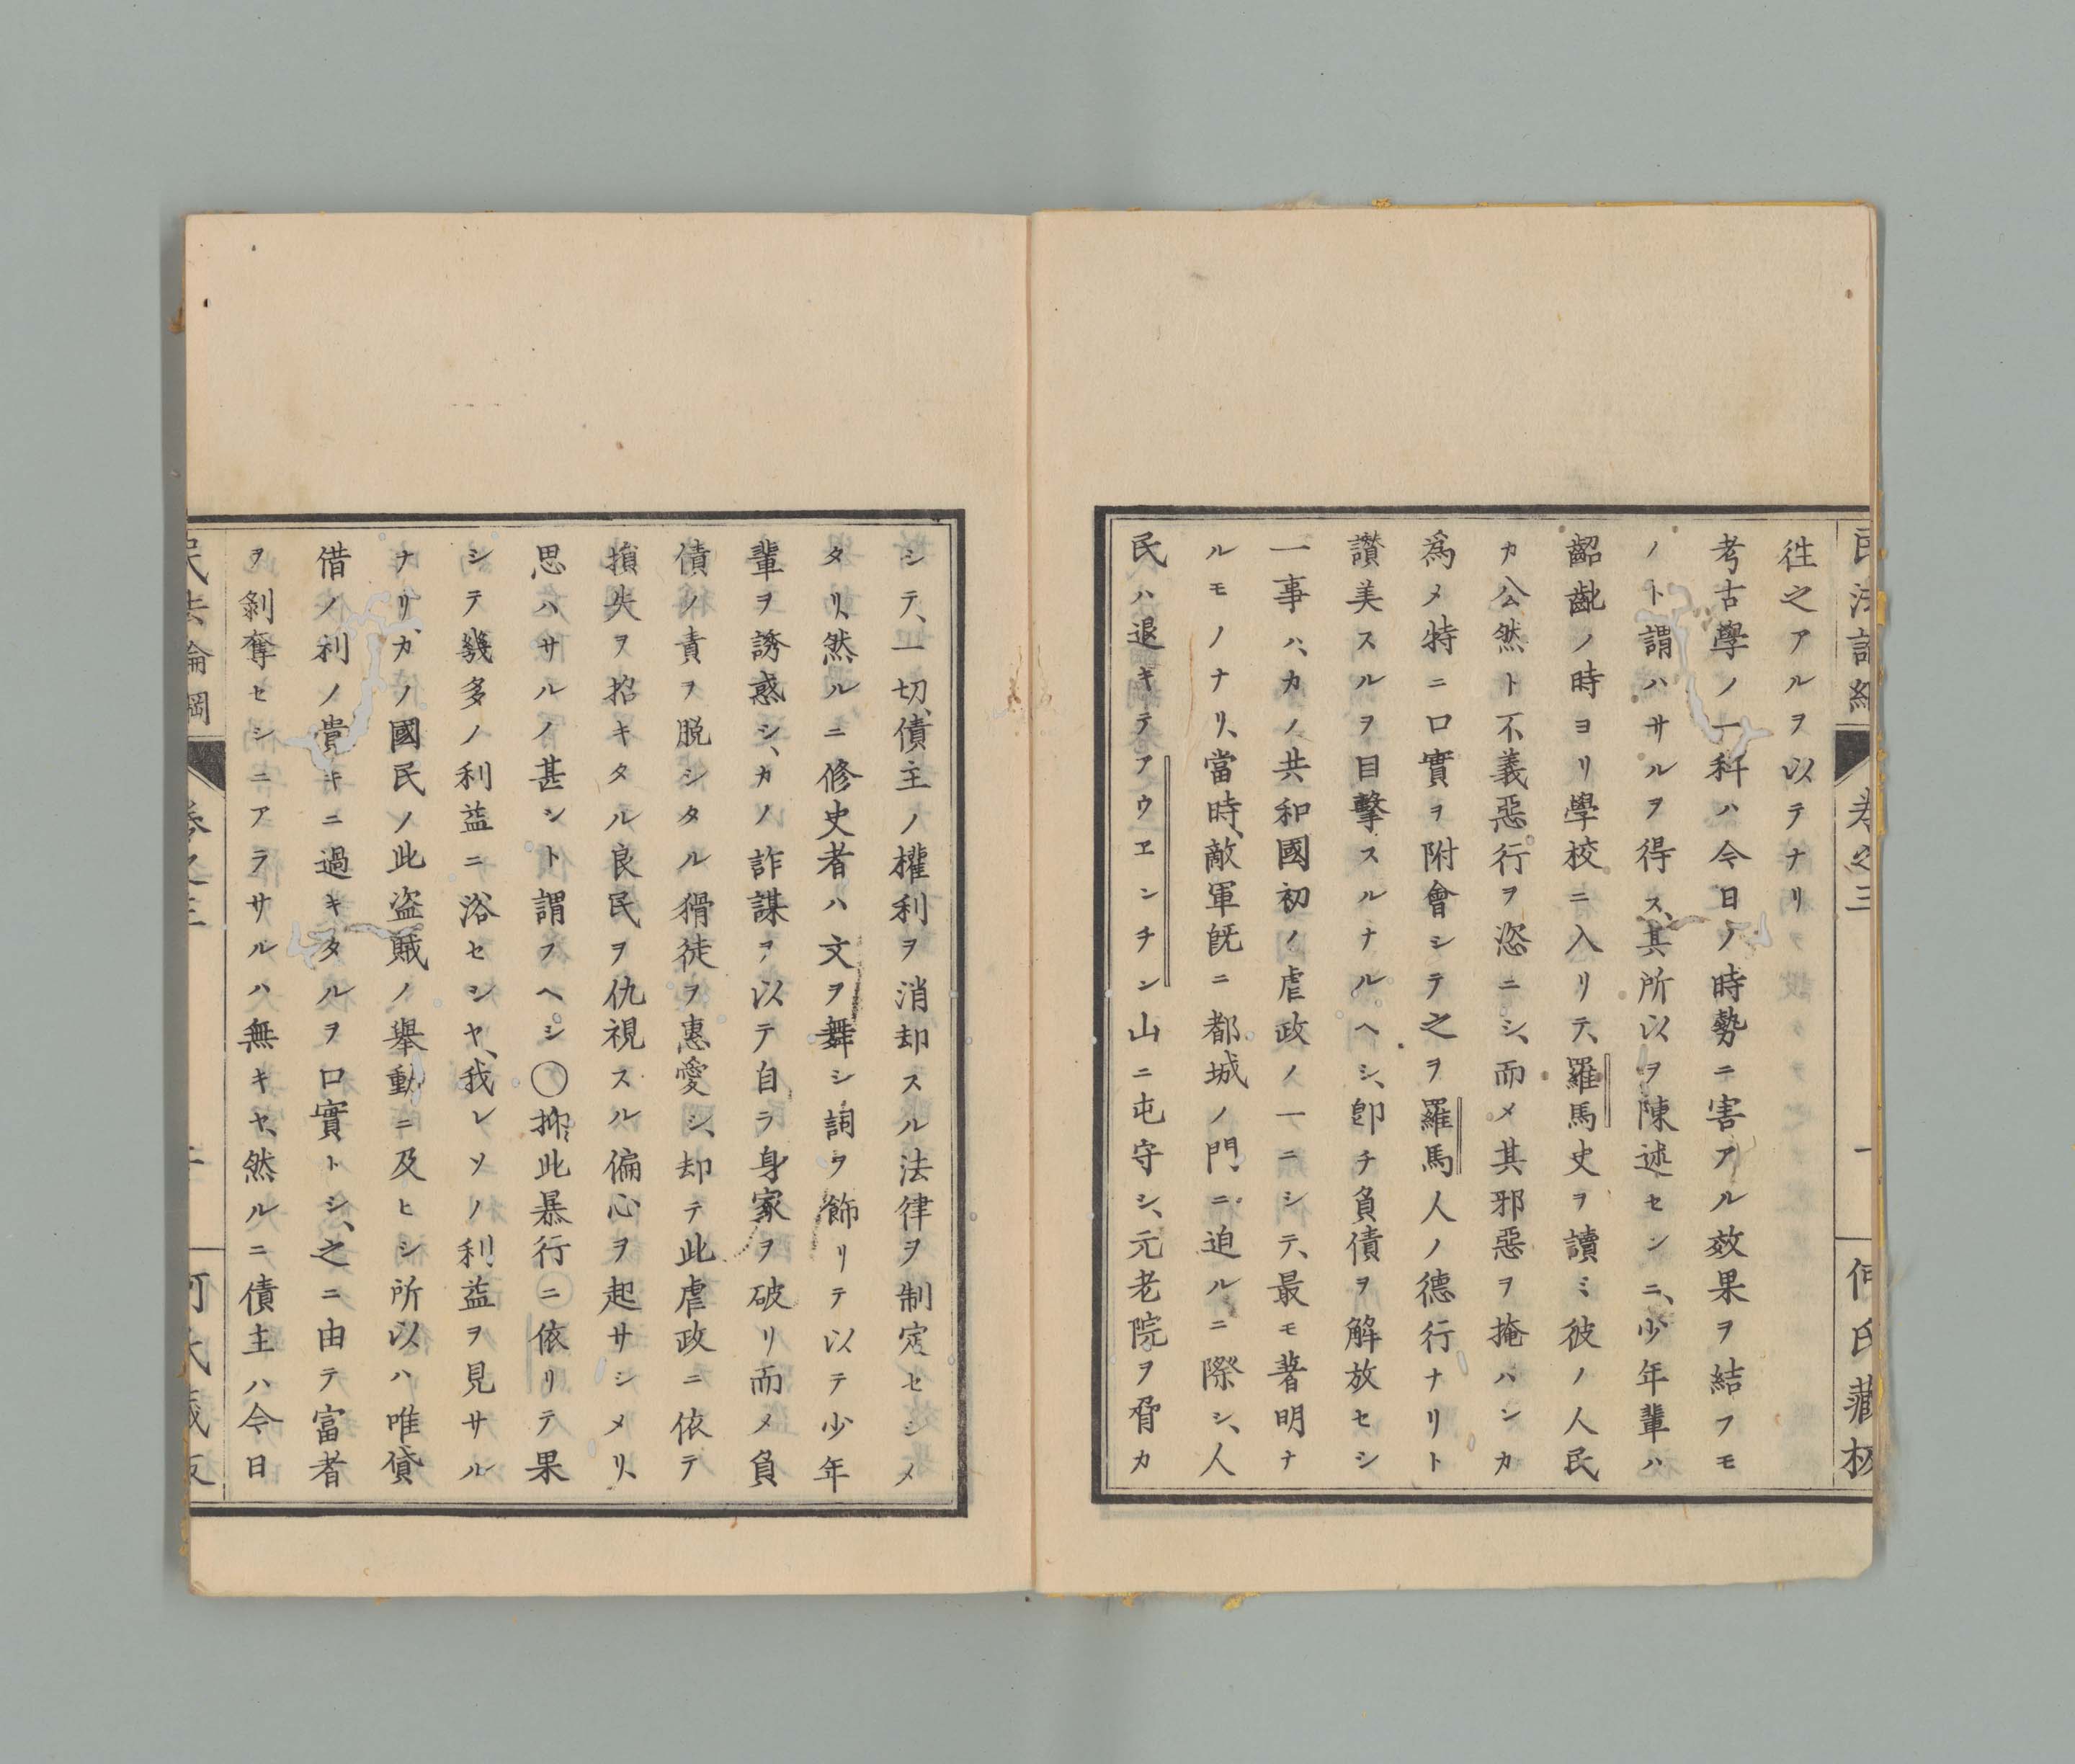 民法論綱 卷之三 一 何氏藏板
徃之アルヲ以テナリ
考古學ノ一科ハ今日ノ時勢ニ害アル效果ヲ結フモ
ノト謂ハサルヲ得ス、其所以ヲ陳述センニ、少年輩ハ
齠齔ノ時ヨリ學校ニ入リテ、羅馬史ヲ讀ミ彼ノ人民
カ公然ト不義惡行ヲ恣ニシ、而メ其邪惡ヲ掩ハンカ
爲メ特ニ口實ヲ附會シテ之ヲ羅馬人ノ德行ナリト
讃美スルヲ目擊スルナルヘシ、卽チ負債ヲ解放セシ
一事ハ、カノ共和國初ノ虐政ノ一ニシテ、最モ著明ナ
ルモノナリ、當時、敵軍旣ニ都城ノ門ニ迫ルニ際シ、人
民ハ退キテアウエンチン山ニ屯守シ、元老院ヲ脅カ
シテ、一切債主ノ權利ヲ消却スル法律ヲ制定セシメ
タリ、然ルニ修史者ハ文ヲ舞シ詞ヲ飾リテ以テ少年
輩ヲ誘惑シ、カノ詐謀ヲ以テ自ラ身家ヲ破リ而メ負
債ノ責ヲ脱シタル猾徒ヲ惠愛シ、却テ此虐政ニ依テ
損失ヲ招キタル良民ヲ仇視スル偏心ヲ起サシメリ、
思ハサルノ甚シト謂フヘシ〇抑此暴行ニ依リテ果
シテ幾多ノ利益ニ浴セシヤ、我レソノ利益ヲ見サル
ナリ、カノ國民ノ此盜賊ノ擧動ニ及ヒシ所以ハ唯貸
借ノ利ノ貴キニ過キタルヲ口實トシ、之ニ由テ富者
ヲ剝奪セシニアラサルハ無キヤ、然ルニ債主ハ今日
民法論綱 卷之三 二 何氏藏板